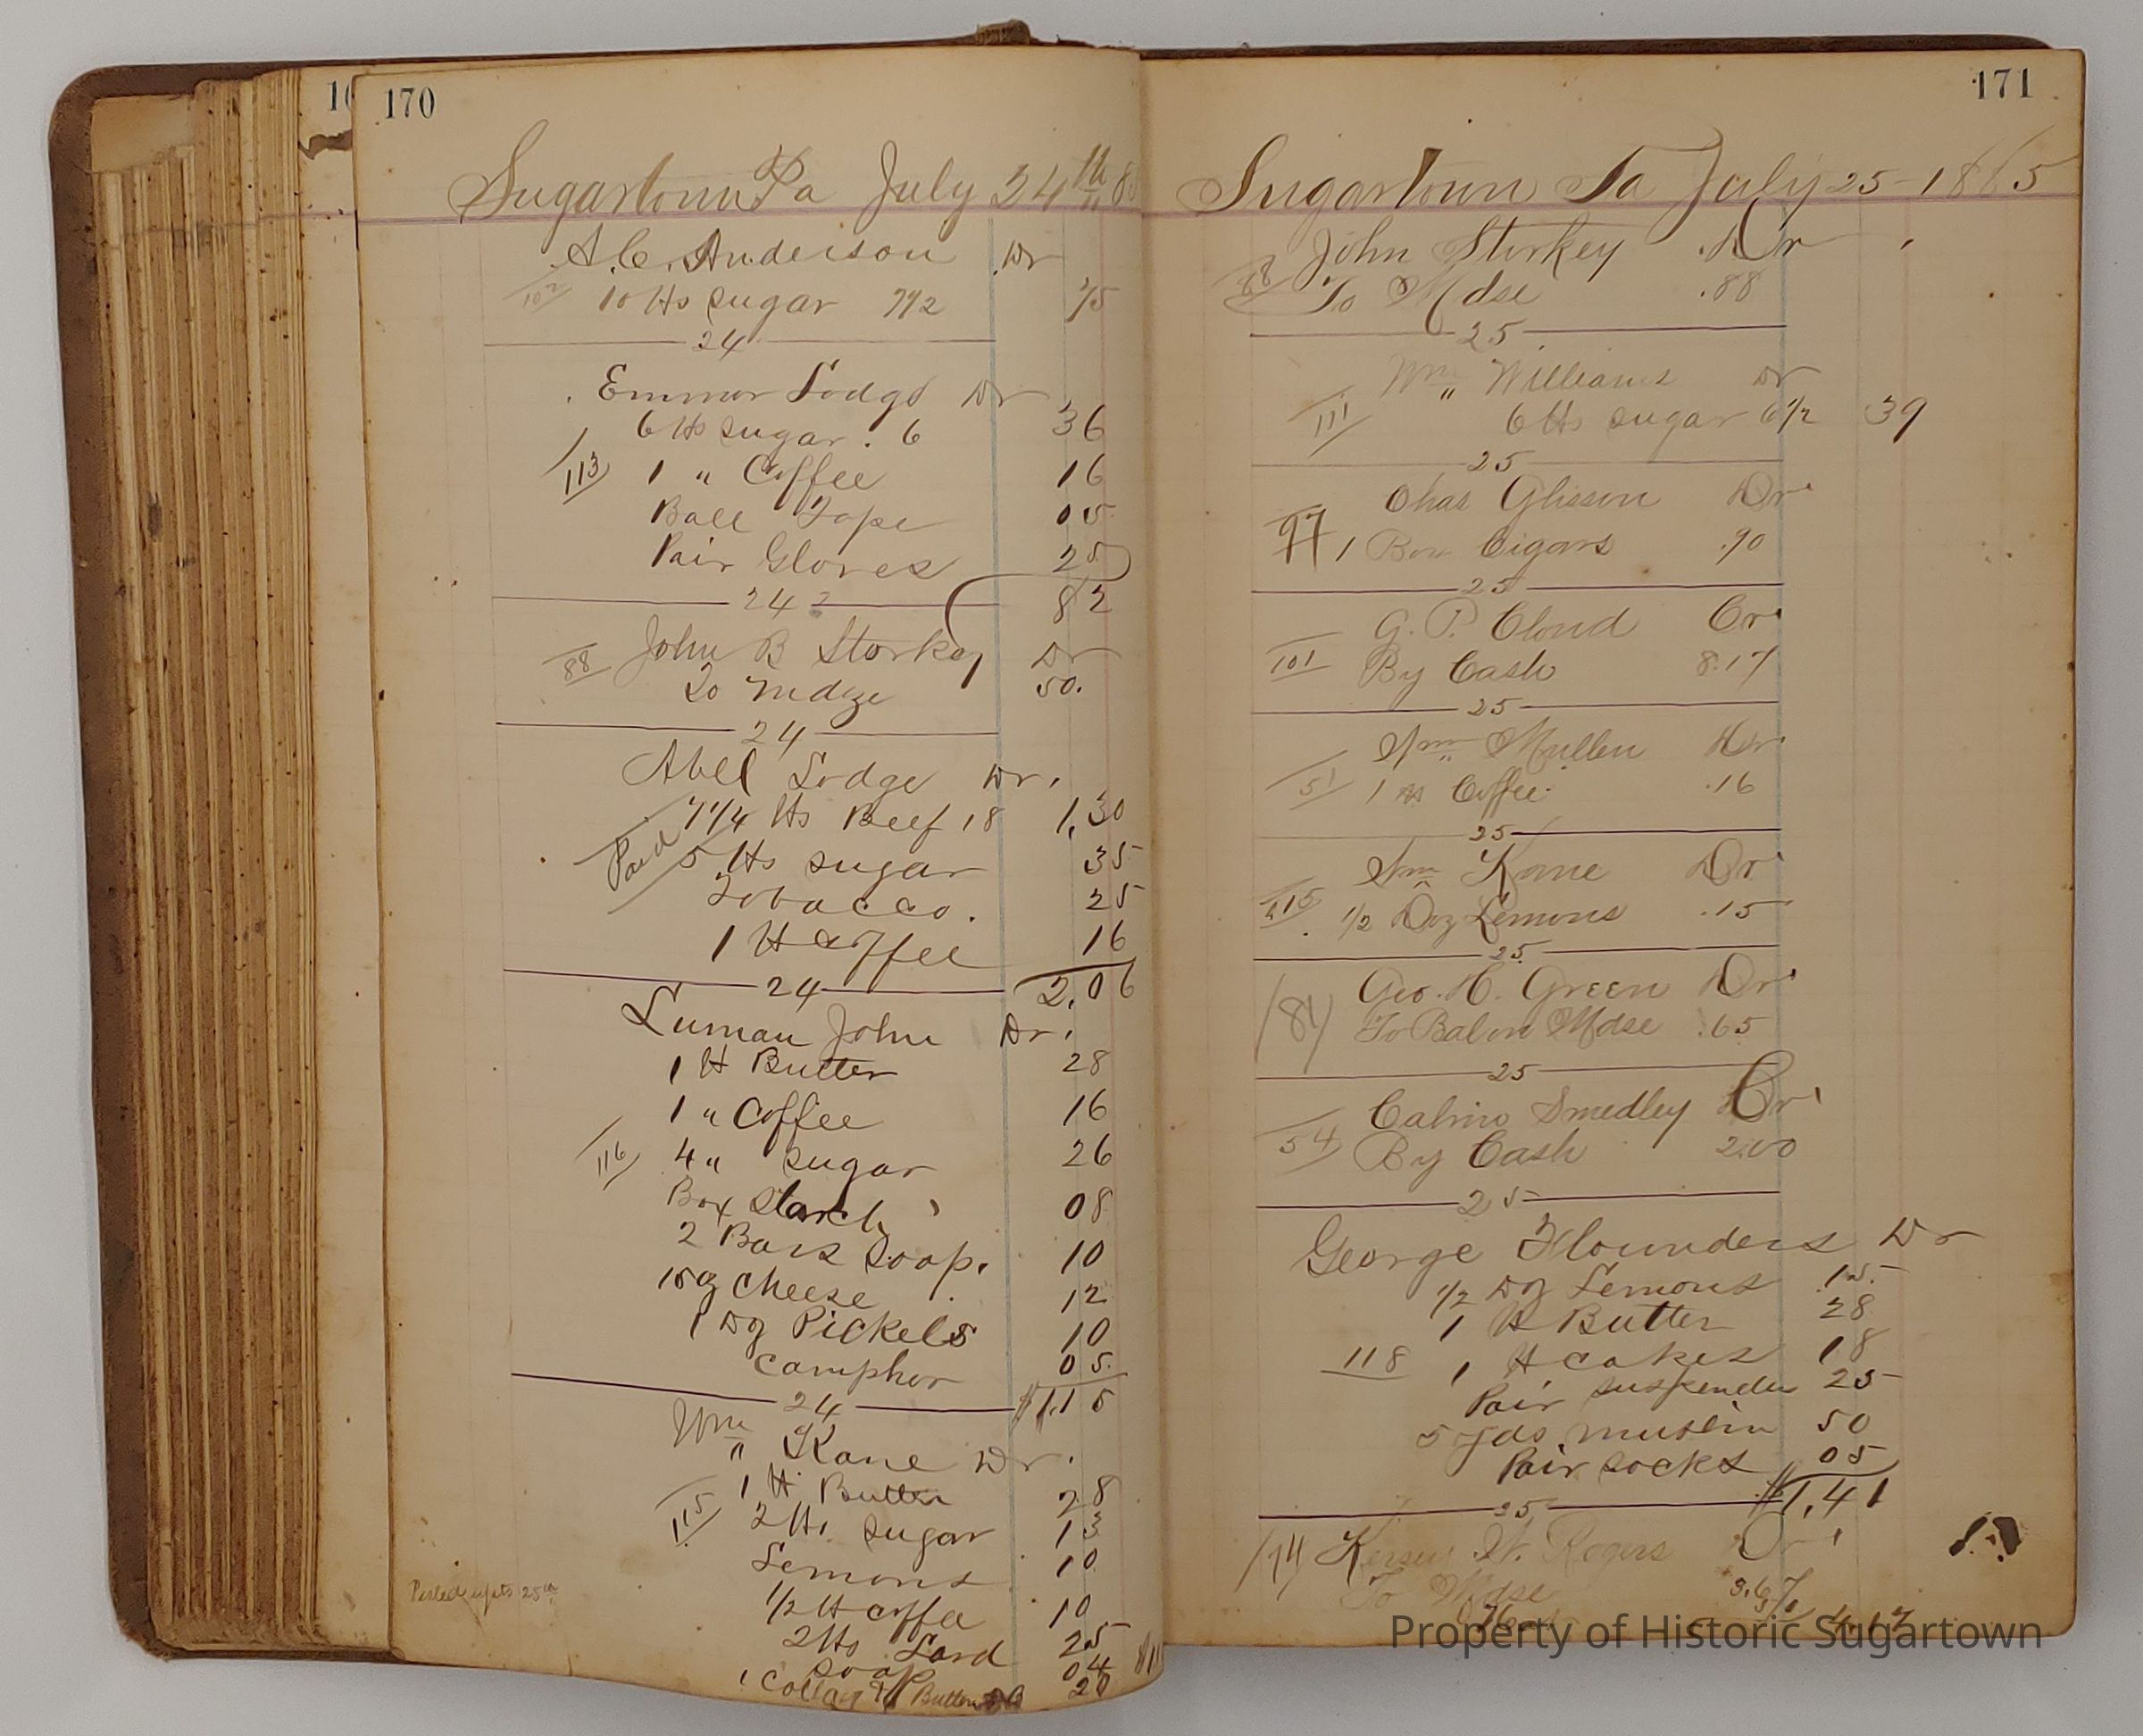 170
Sugartown Pa July 24th 8
A.C. Anderson Dr
10 lbs sugar 7 1/2 75
24
Emmor Lodge Dr
6 lbs sugar . 6 36
113 1 " Coffee 16
Ball Tape 05
Pair Gloves 25
82
24
John B Storkey Dr
88
To Mdze 50.
24
Abel Lodge Dr.
7 1/4 lbs Beef 18 1,30
Paid 5 lbs sugar 35
Tobacco. 25
1 lb Coffee 16
24 2,06
Luman John Dr.
1 lb Butter 28
1 " Coffee 16
116 4 " sugar 26
Box Starch 08
2 Bars Soap. 10
Cheese 12
1 Dz Pickels 10
Camphor 05
24 $1.15
Wm Kane Dr.
1 lb Butter 28
115 2 lbs sugar 13
Lemons 10
1/2 lb Coffee 10
2 lbs Lard 25
Soap 04
1 Collar Button 20
Posted up to 25th
171
Sugartown Pa July 25-1865
John Storkey Dr
88 To Mdse .88
25
Wm Williams Dr
111 6 lbs sugar 6 1/2 39
25
Chas Glisson Dr
97 1 Box Cigars .90
25
G. P. Cloud Cr
101 By Cash 8.17
25
Wm Mullen Dr
51 1 lb Coffee .16
25
Wm Kane Dr
115 1/2 Doz Lemons .15
25
Geo. H. Green Dr
84 To Bal on Mdse .65
25
Smedley Cr
54 By Cash 2.00
25
George Flounders Dr
1/2 Dz Lemons 15.
1 lb Butter 28
118 1 lb cakes 18
Pair suspender 25
5 yds muslin 50
Pair socks 05
25 $1,41
Kersey W. Rogers Dr
To Mdse 3.67
4.17
Property of Historic Sugartown